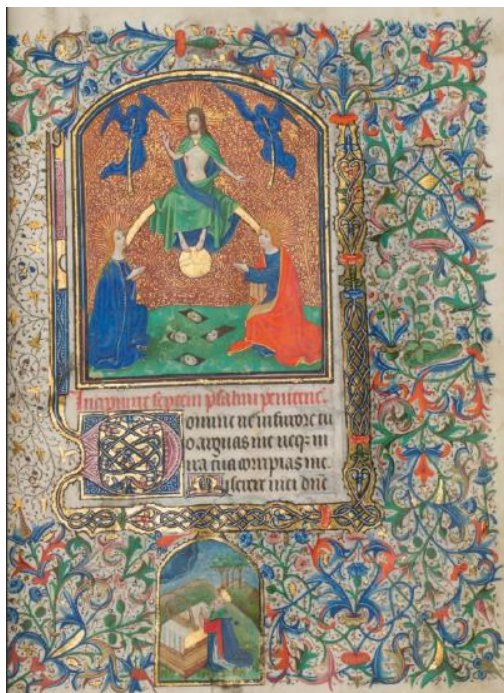 Incipiunt septem psalmi penitenc
Domine ne in furore tu
o arguas me neq; in
ira tua corripias me.
Miserere mei dñe